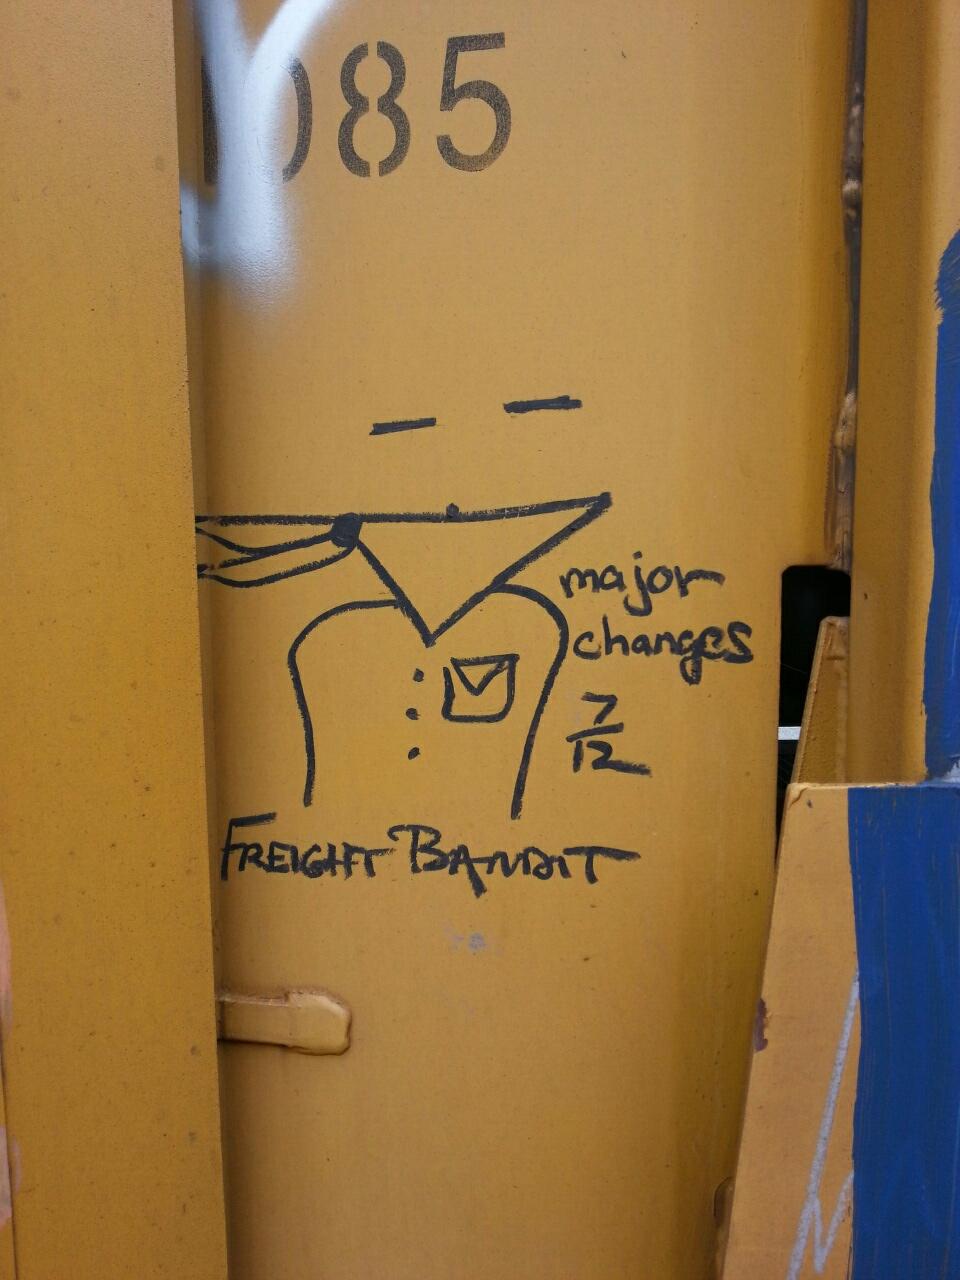 085
major
changes
7
12
FREIGHT BANDIT